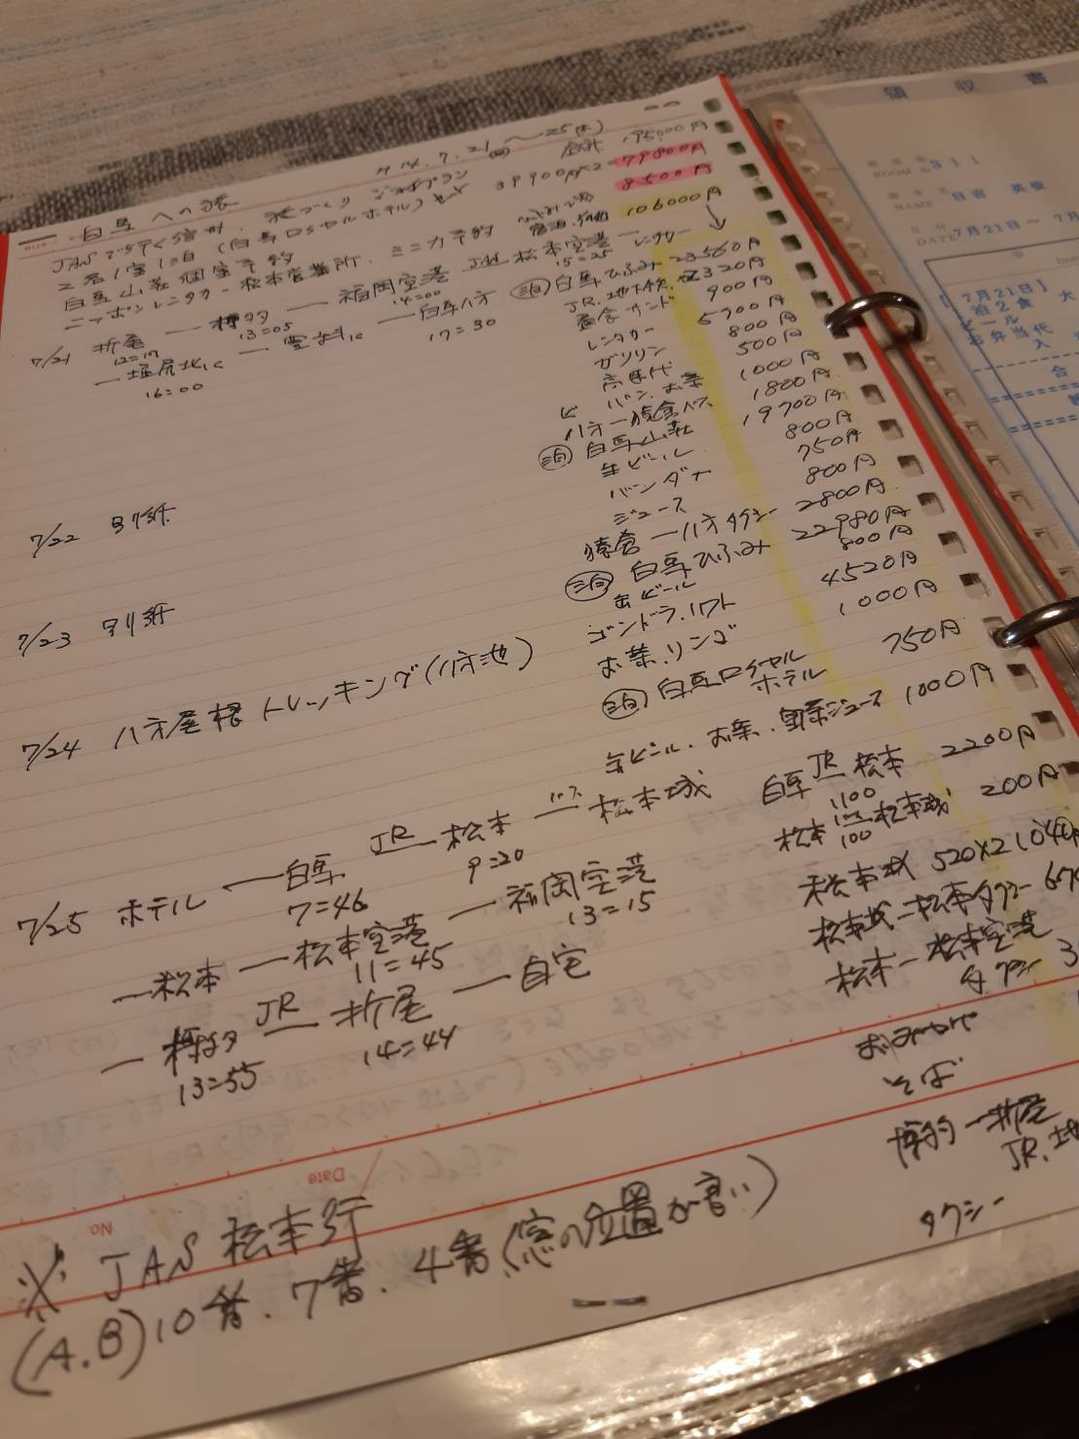 白馬への旅
H14.7.21(日)〜25(木)
合計 195,000円
JASで行く信州
旅づくり
39900円×2=79800円
2名1室1泊(白馬ロイヤルホテル)
8500円
白馬山荘個室予約
106000円
ニッポンレンタカー松本営業所、ミニカ予約
7/21 折尾 — 博多 — 福岡空港 JAS 松本空港 — レンタカー
12=19 13=05 14=00 15=25
— 塩尻北IC — 豊科IC — 白馬八方
16=00 17=30
7/22 別紙
7/23 別紙
7/24 八方尾根トレッキング(八方池)
7/25 ホテル — 白馬 JR 松本 バス 松本城
7=46 9=20
— 松本 — 松本空港 — 福岡空港
11=45 13=15
— 博多 JR 折尾 — 自宅
13=55 14=44
(泊)白馬ひふみ 23560円
JR.地下鉄 2320円
昼食サンド 900円
レンタカー 5700円
ガソリン 800円
高速代 500円
パン、お茶 1000円
八方—猿倉バス 1800円
(泊)白馬山荘 19700円
缶ビール 800円
バンダナ 750円
ジュース 800円
猿倉—八方タクシー 2800円
(泊)白馬ひふみ 22980円
缶ビール 800円
ゴンドラ.リフト 4520円
お茶、リンゴ 1000円
(泊)白馬ロイヤルホテル 750円
缶ビール、お茶、野菜ジュース 1000円
白馬 JR 松本 2200円
1100
松本 バス 松本城 200円
100
松本城 520×2 1040円
松本城—松本タクシー 670
松本—松本空港
タクシー 3
おみやげ
そば
博多—折尾
JR.地
タクシー
※ JAS 松本行
(A.B)10番、7番、4番(窓の位置が良い)
Date
No
領収書
ROOM No 311
NAME
DATE 7月21日〜7月
【7月21日】
1泊2食
ビール
お弁当代
合